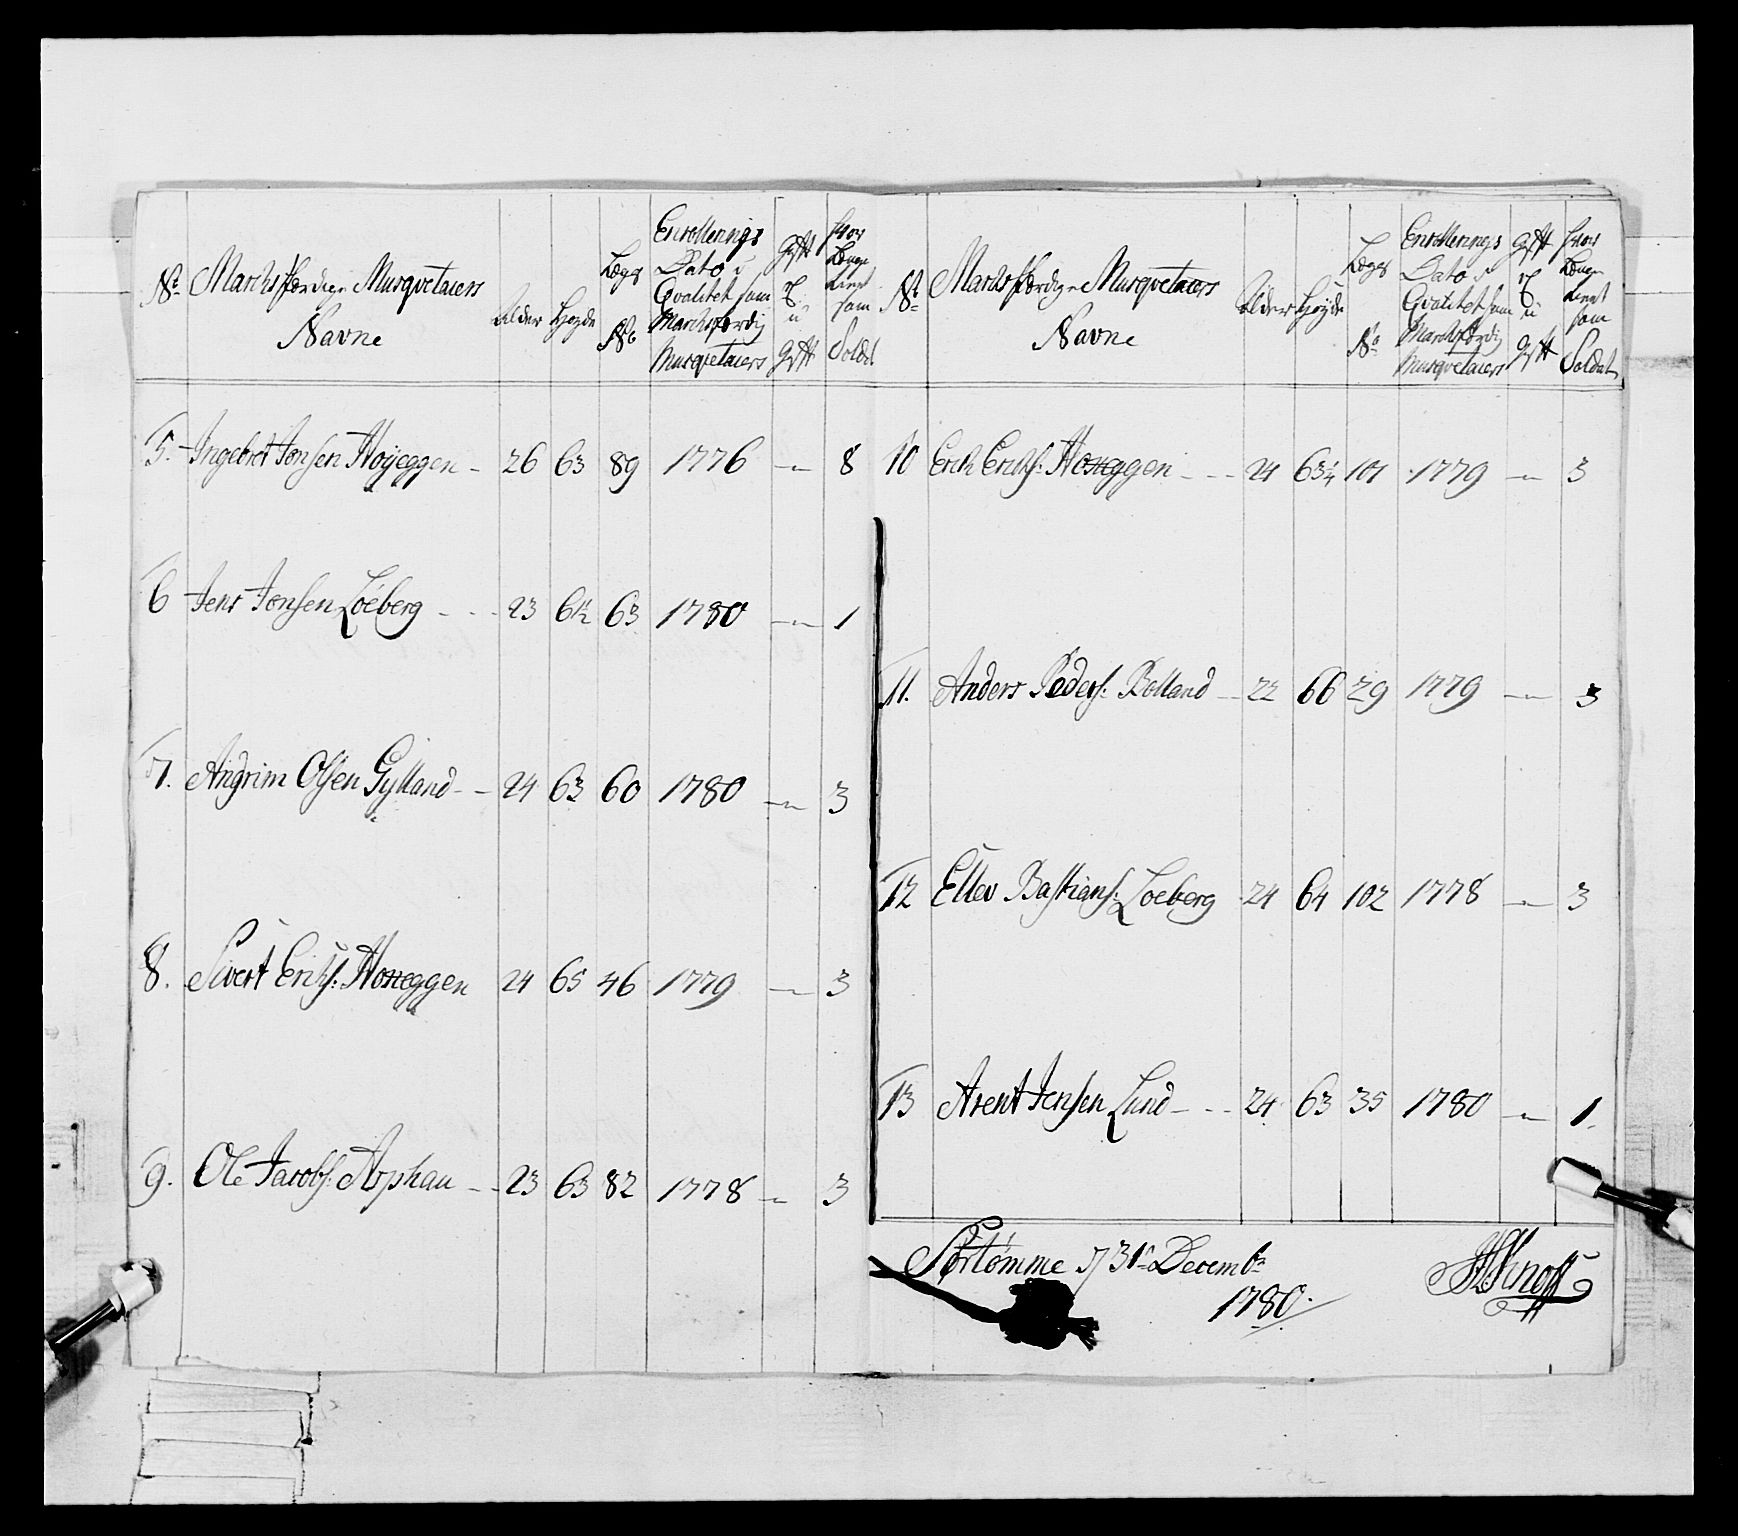 No Marchsfærdige Musquetaiers Navne Alder Høyde Lægs No Enrollerings Dato i Qvalitet som Marchsfærdig Musquetaiers Gift og u Gift Hvor Længe tient som Soldat
5. Ingebret Jonsen Høyeggen - 26 63 89 1776 -"- 8
6 Jens Jonsen Loeberg - - - 23 6½ 63 1780 -"- 1
7. Angrim Olsen Gylland - - 24 63 60 1780 -"- 3
8. Sivert Erichs: Honeggen 24 65 46 1779 -"- 3
9. Ole Jacobs: Asphau - - 23 63 82 1778 -"- 3
No Marchsfærdige Musquetaiers Navne Alder Høyde Lægs No Enrollerings Dato i Qvalitet som Marchsfærdig Musquetaiers Gift og u Gift Hvor Længe tient som Soldat
10 Erich Erichs: Honeggen - - - 24 63¼ 101 1779 -"- 3
11. Anders Peders: Bolland - 22 66 29 1779 -"- 3
12 Ellev Bastians: Loeberg 24 64 102 1778 -"- 3
13 Arent Jensen Lund - - - 24 63 35 1780 -"- 1.
Størtømme d 31te Decembr
1780.
Knoff